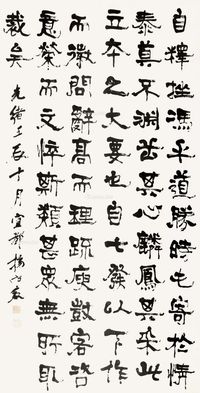 自釋挫馮乎道勝時屯寄於情
泰莫不淵岳其心麟鳳其采此
立本之大要也自七發以下作
而問辭高而理疏庾敳客咨
意榮而文悴斯類甚眾無所取
裁矣
光緒壬辰十月宜都楊守敬